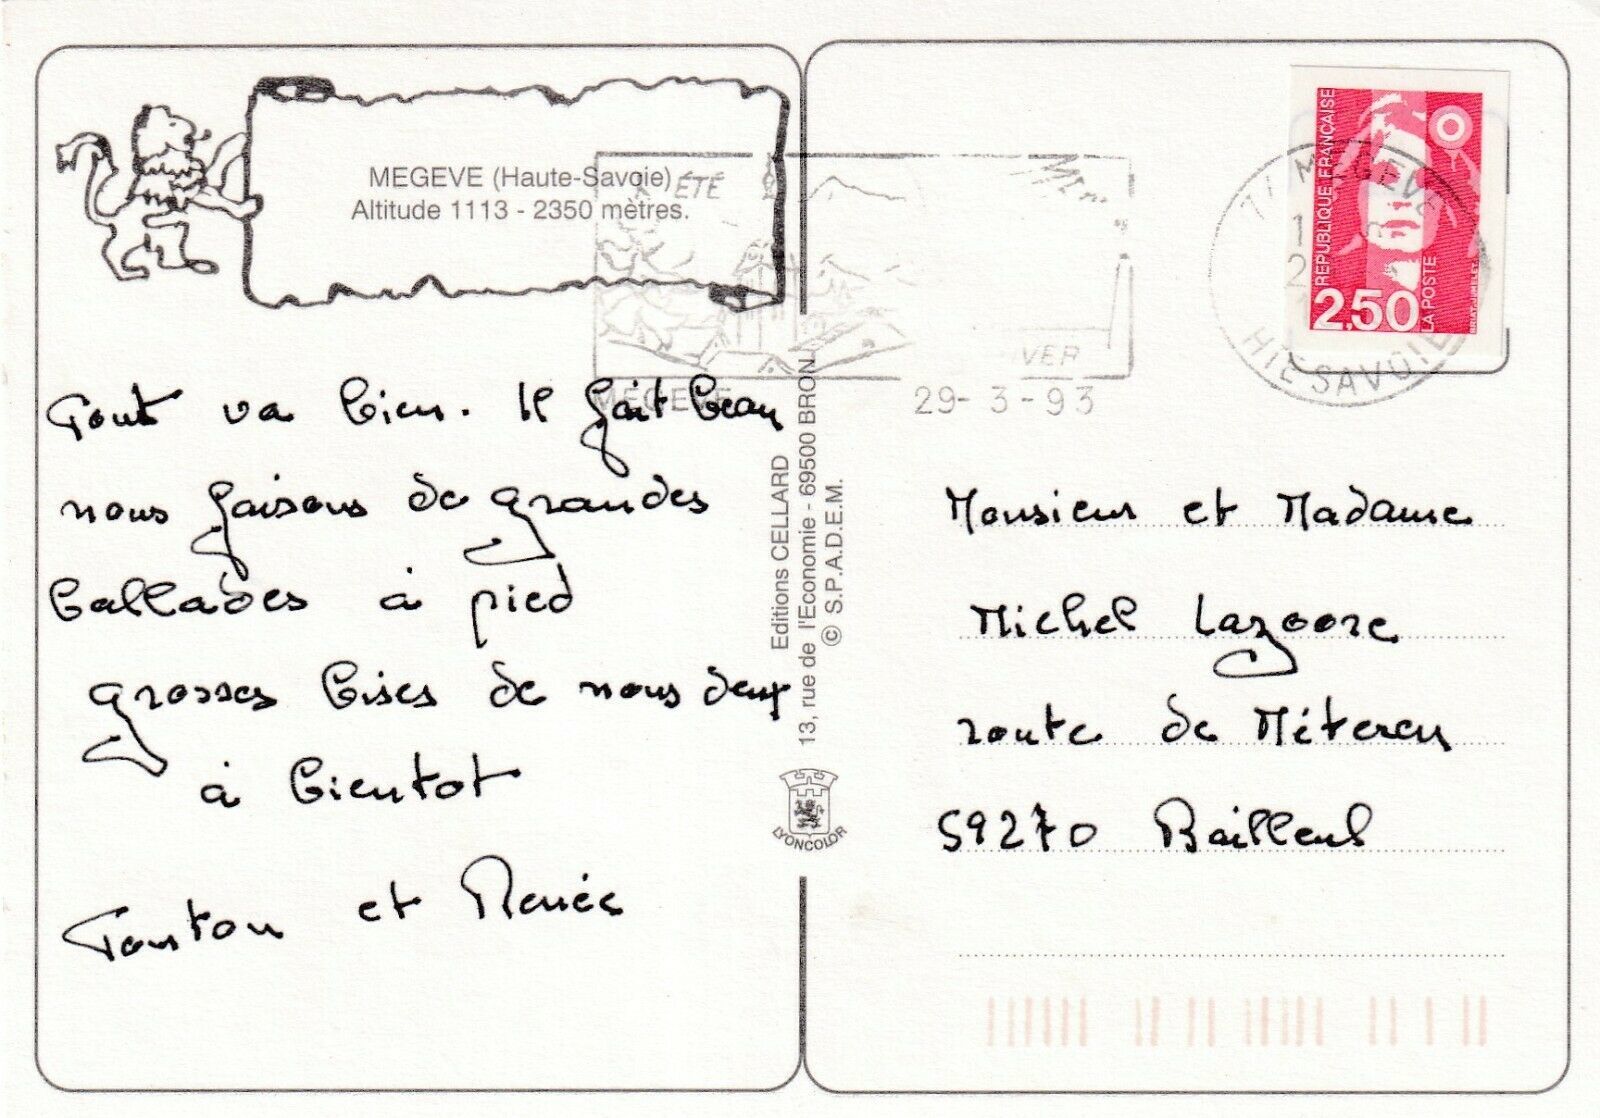 MEGEVE (Haute-Savoie)
Altitude 1113 - 2350 mètres.
ÉTÉ
MEGEVE
29-3-93
MEGEVE
HTE SAVOIE
REPUBLIQUE FRANÇAISE
2,50
LA POSTE
Tout va bien. Il fait beau
nous faisons de grandes
ballades à pied
grosses bises de nous deux
à bientot
Tonton et Renée
Editions CELLARD
13, rue de l'Economie - 69500 BRON
© S.P.A.D.E.M.
LYONCOLOR
Monsieur et Madame
Michel Lazoore
route de Méteren
59270 Bailleul